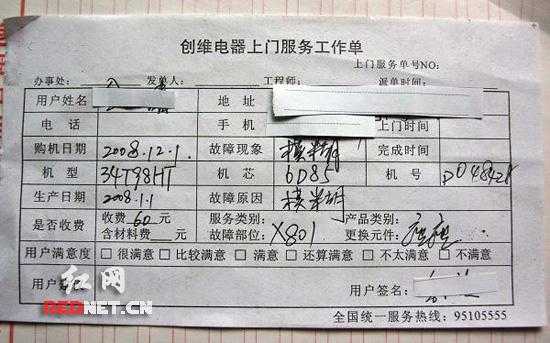 创维电器上门服务工作单
上门服务单号NO:
办事处: 发单人: 工程师: 派单时间:
用户姓名 地址
电话 手机 上门时间
购机日期 2008.12.1. 故障现象 模糊 完成时间
机型 34T98HT 机芯 6D85 机号
生产日期 2008.1.1 故障原因 模糊
是否收费 收费60元 服务类别: 产品类别:
含材料费 元 故障部位: X801 更换元件:
用户满意度 □很满意 □比较满意 □满意 □还算满意 □不太满意 □不满意
用户
用户签名:
全国统一服务热线: 95105555
红网
REDNET.CN